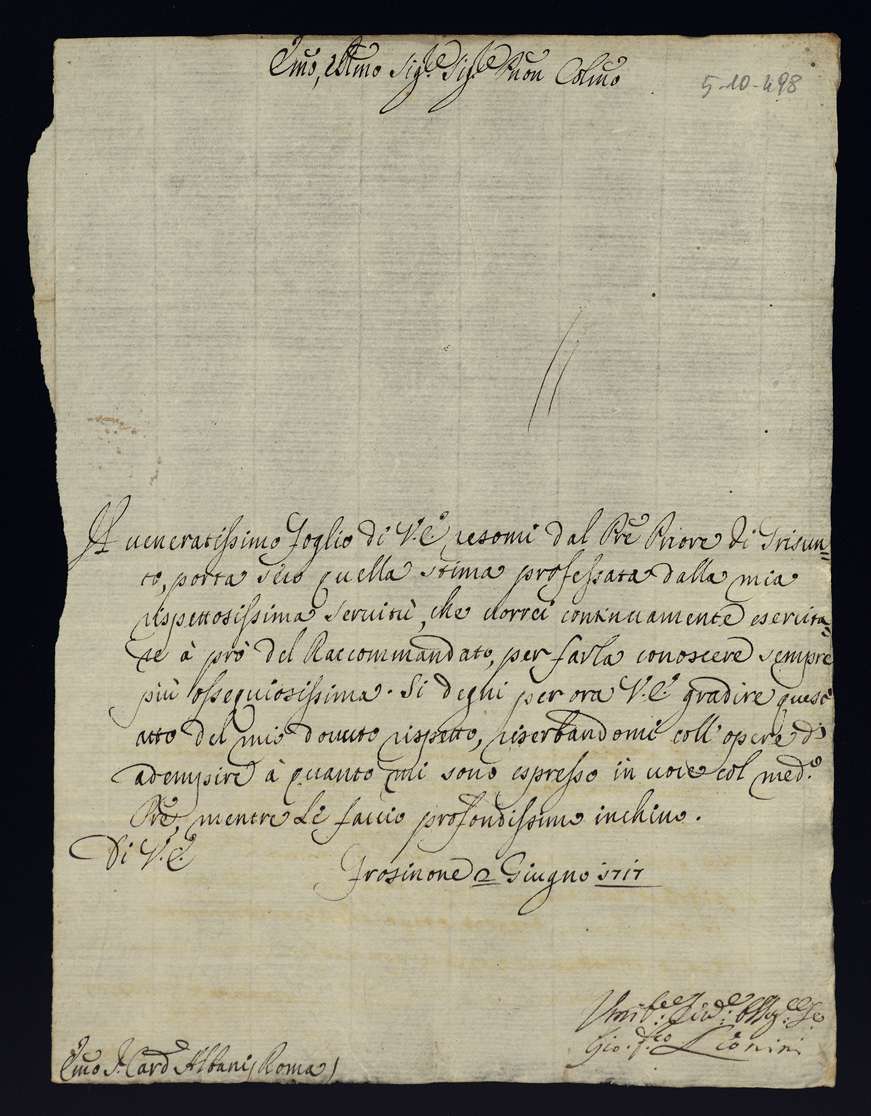 Emo, e Rmo Sig.re Sig.re Pron Colmo
5-10-498
Il veneratissimo foglio di V.E. resomi dal Pre Priore di Trisun=
to, porta seco quella stima professata dalla mia
rispettosissima servitù, che vorrei continuamente esercita=
re à prò del Raccommandato, per farla conoscere sempre
più ossequiosissima. Si degni per ora V.E. gradire quest'
atto del mio dovuto rispetto, riserbandomi coll'opere di
adempire à quanto mi sono espresso in voce col med.o
Pre, mentre Le faccio profondissimo inchino.
Di V.E.
Frosinone 2 Giugno 1717
Emo S. Card Albani, Roma
Gio. Fco